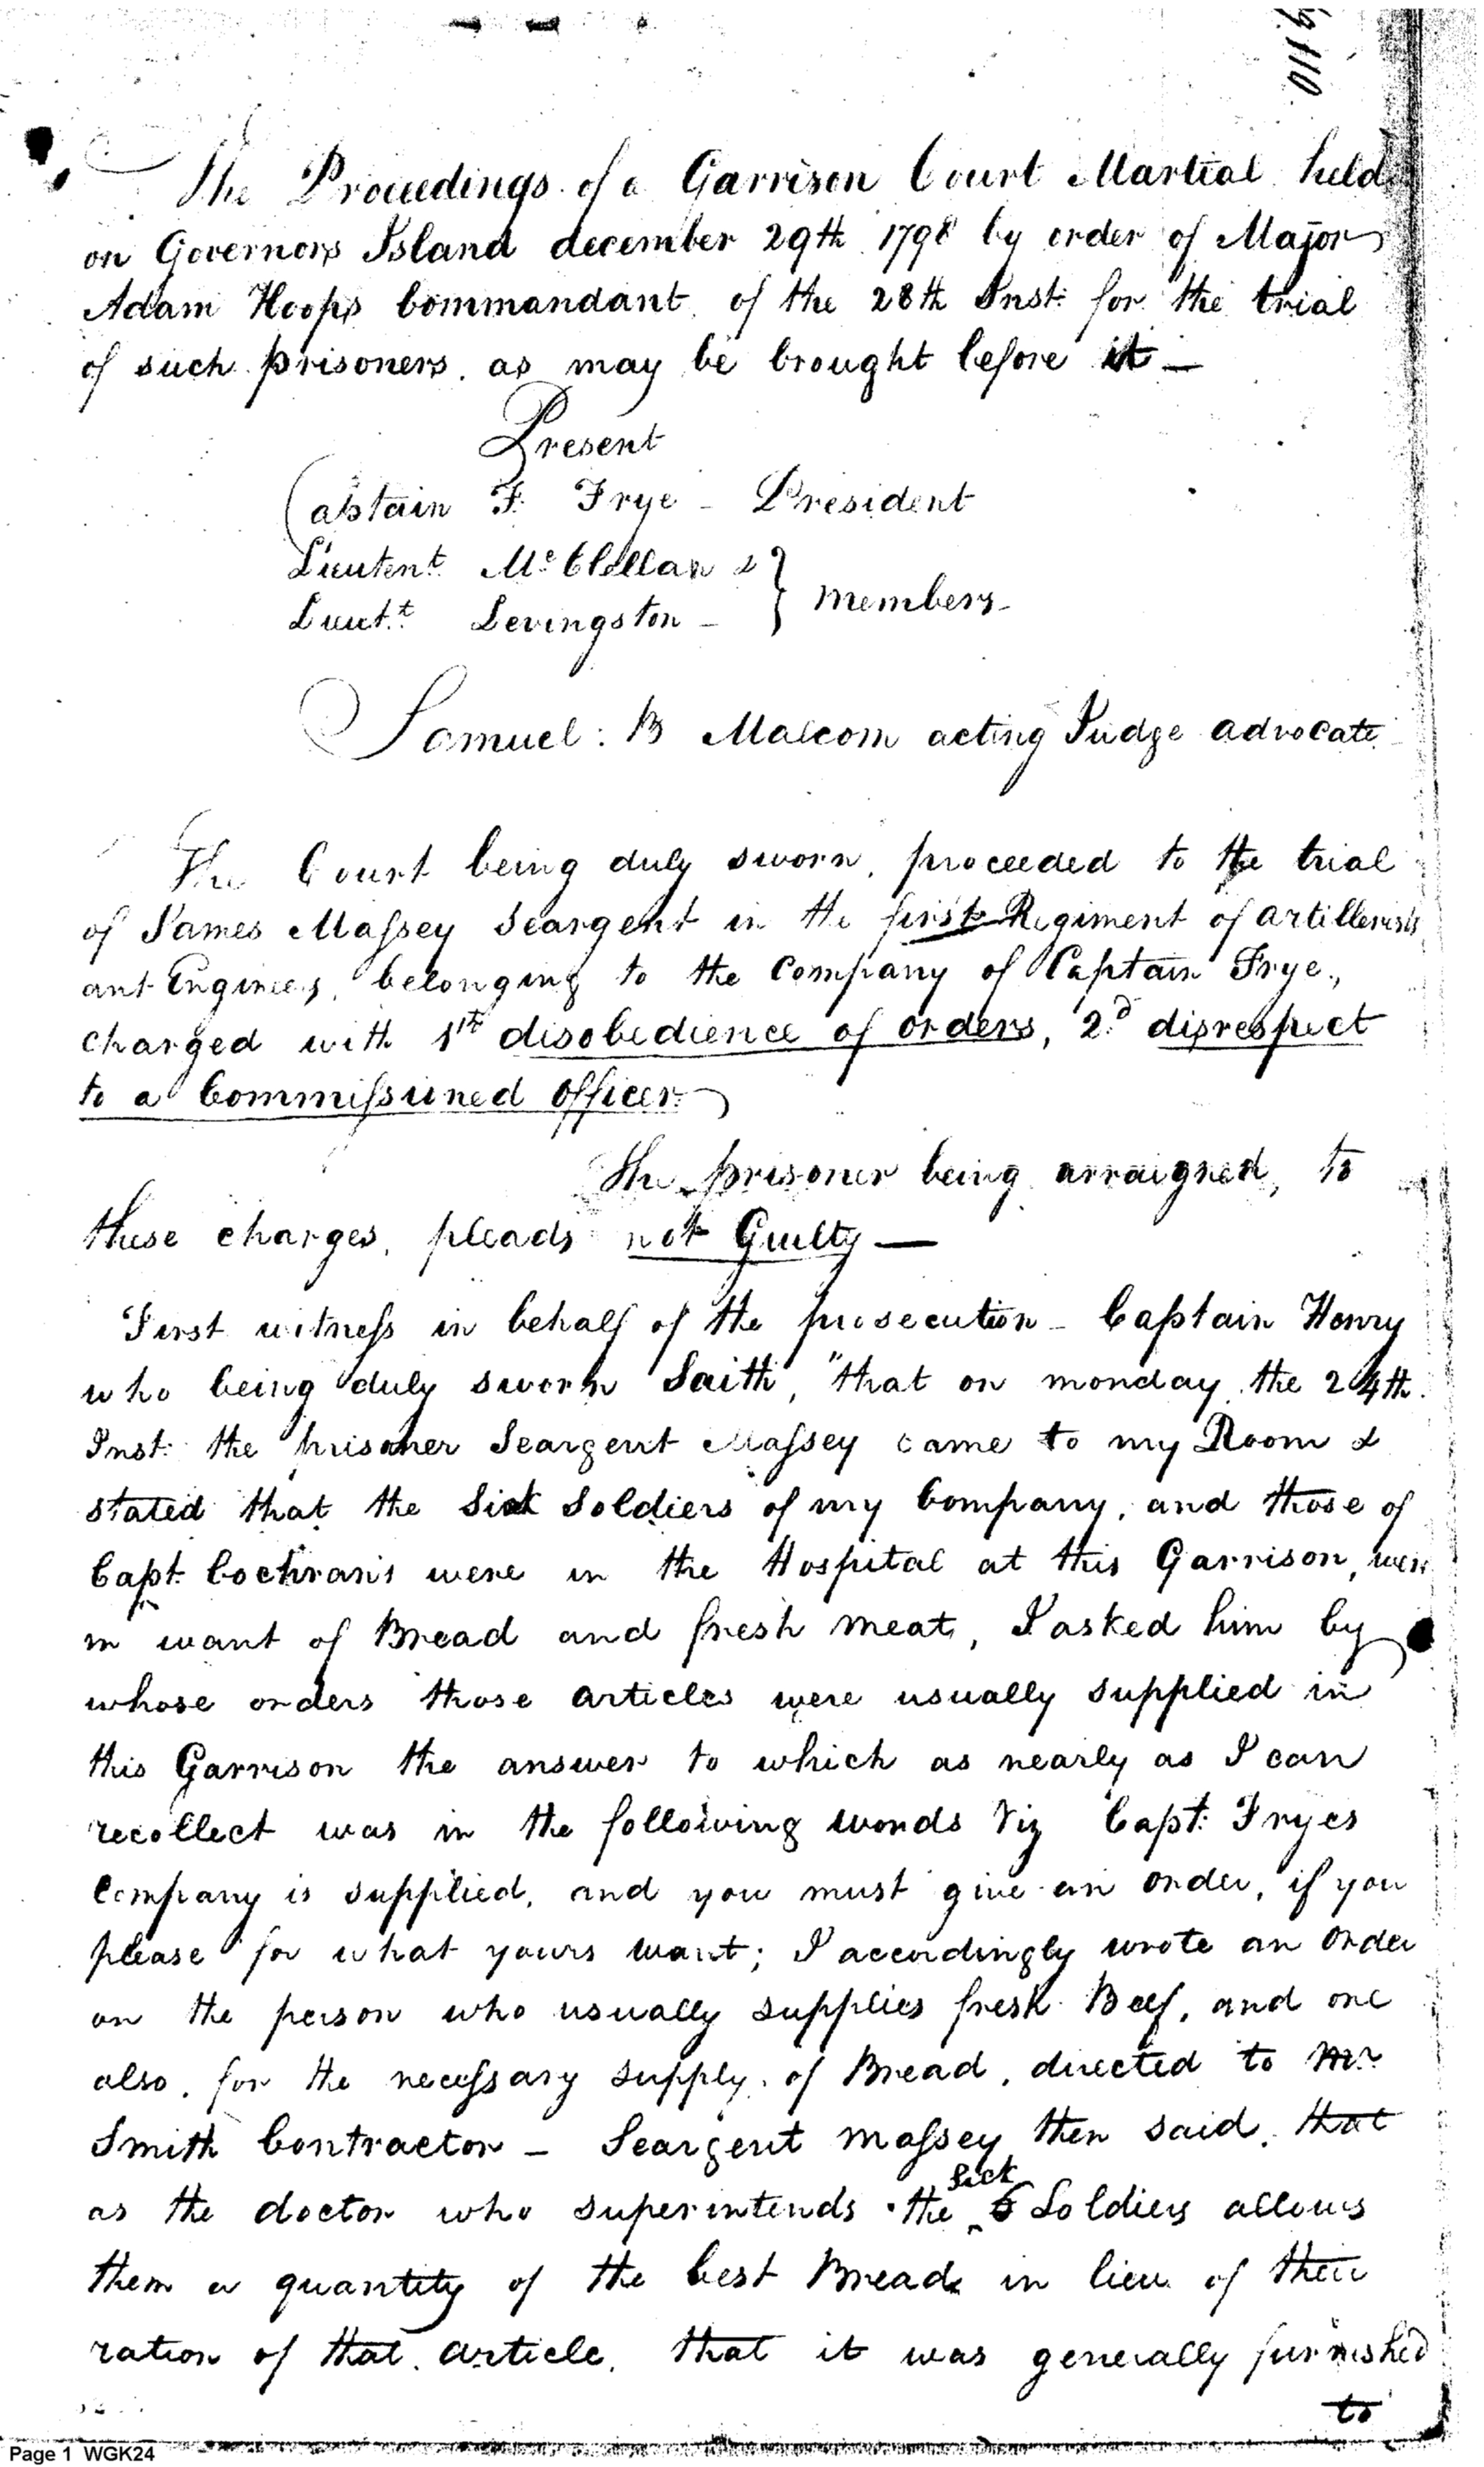 The Proceedings of a Garrison Court Martial held
on Governors Island december 29th 1798 by order of Major
Adam Hoops Commandant of the 28th Inst: for the trial
of such prisoners. as may be brought before it —
Present
Captain F. Frye - President
Lieutent. McClellan &
Lieutt. Levingston - } members -
Samuel: B Malcom acting Judge advocate
The Court being duly sworn, proceeded to the trial
of James Maſsey Seargent in the first Regiment of artillerists
ant Engineers, belonging to the Company of Captain Frye.,
charged with 1st disobedience of orders, 2d disrespect
to a Commiſsioned officer.
The prisoner being arraigned, to
these charges, pleads not Guilty —
First witneſs in behalf of the prosecution - Captain Henry
who being duly sworn Saith, "that on monday the 24th
Inst: the prisoner Seargent Maſsey came to my Room &
stated that the Sick Soldiers of my Company, and those of
Capt. Cochran's were in the Hospital at this Garrison, were
in want of Bread and fresh meat, I asked him by
whose orders those articles were usually supplied in
this Garrison the answer to which as nearly as I can
recollect was in the following words Viz Capt: Fryes
Company is supplied, and you must give an order, if you
please for what yours want; I accordingly wrote an order
on the person who usually supplies fresh Beef, and one
also. for the neceſsary supply. of Bread, directed to Mr
Smith Contractor - Seargent maſsey then said. that
Sick
as the doctor who superintends the Soldiers allows
them a quantity of the best Bread in lieu of their
ration of that article. that it was generally furnished
to
Page 1 WGK24